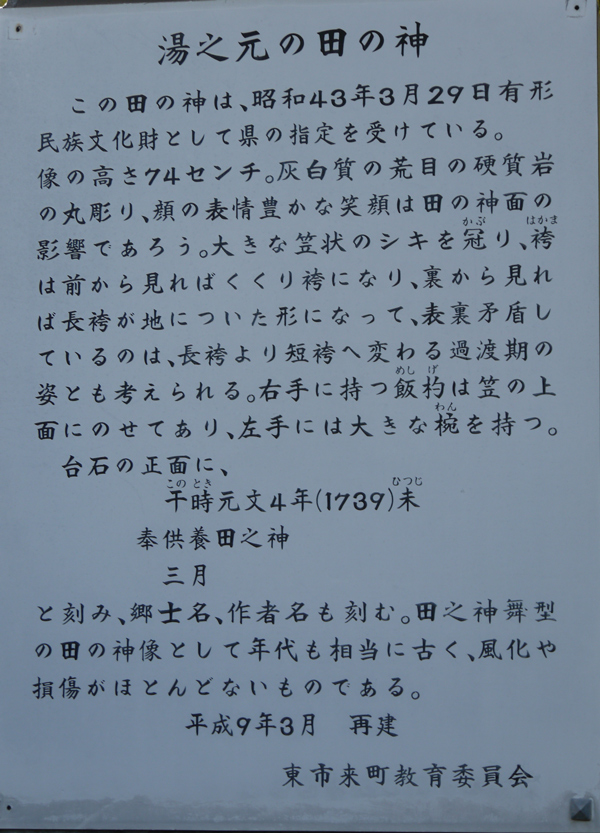 湯之元の田の神
この田の神は、昭和43年3月29日有形
民族文化財として県の指定を受けている。
像の高さ74センチ。灰白質の荒目の硬質岩
の丸彫り、顔の表情豊かな笑顔は田の神面の
影響であろう。大きな笠状のシキを冠り、袴
は前から見ればくくり袴になり、裏から見れ
ば長袴が地についた形になって、表裏矛盾し
ているのは、長袴より短袴へ変わる過渡期の
姿とも考えられる。右手に持つ飯杓は笠の上
面にのせてあり、左手には大きな椀を持つ。
台石の正面に、
干時元文4年(1739)未
奉供養田之神
三月
と刻み、郷士名、作者名も刻む。田之神舞型
の田の神像として年代も相当に古く、風化や
損傷がほとんどないものである。
平成9年3月 再建
東市来町教育委員会